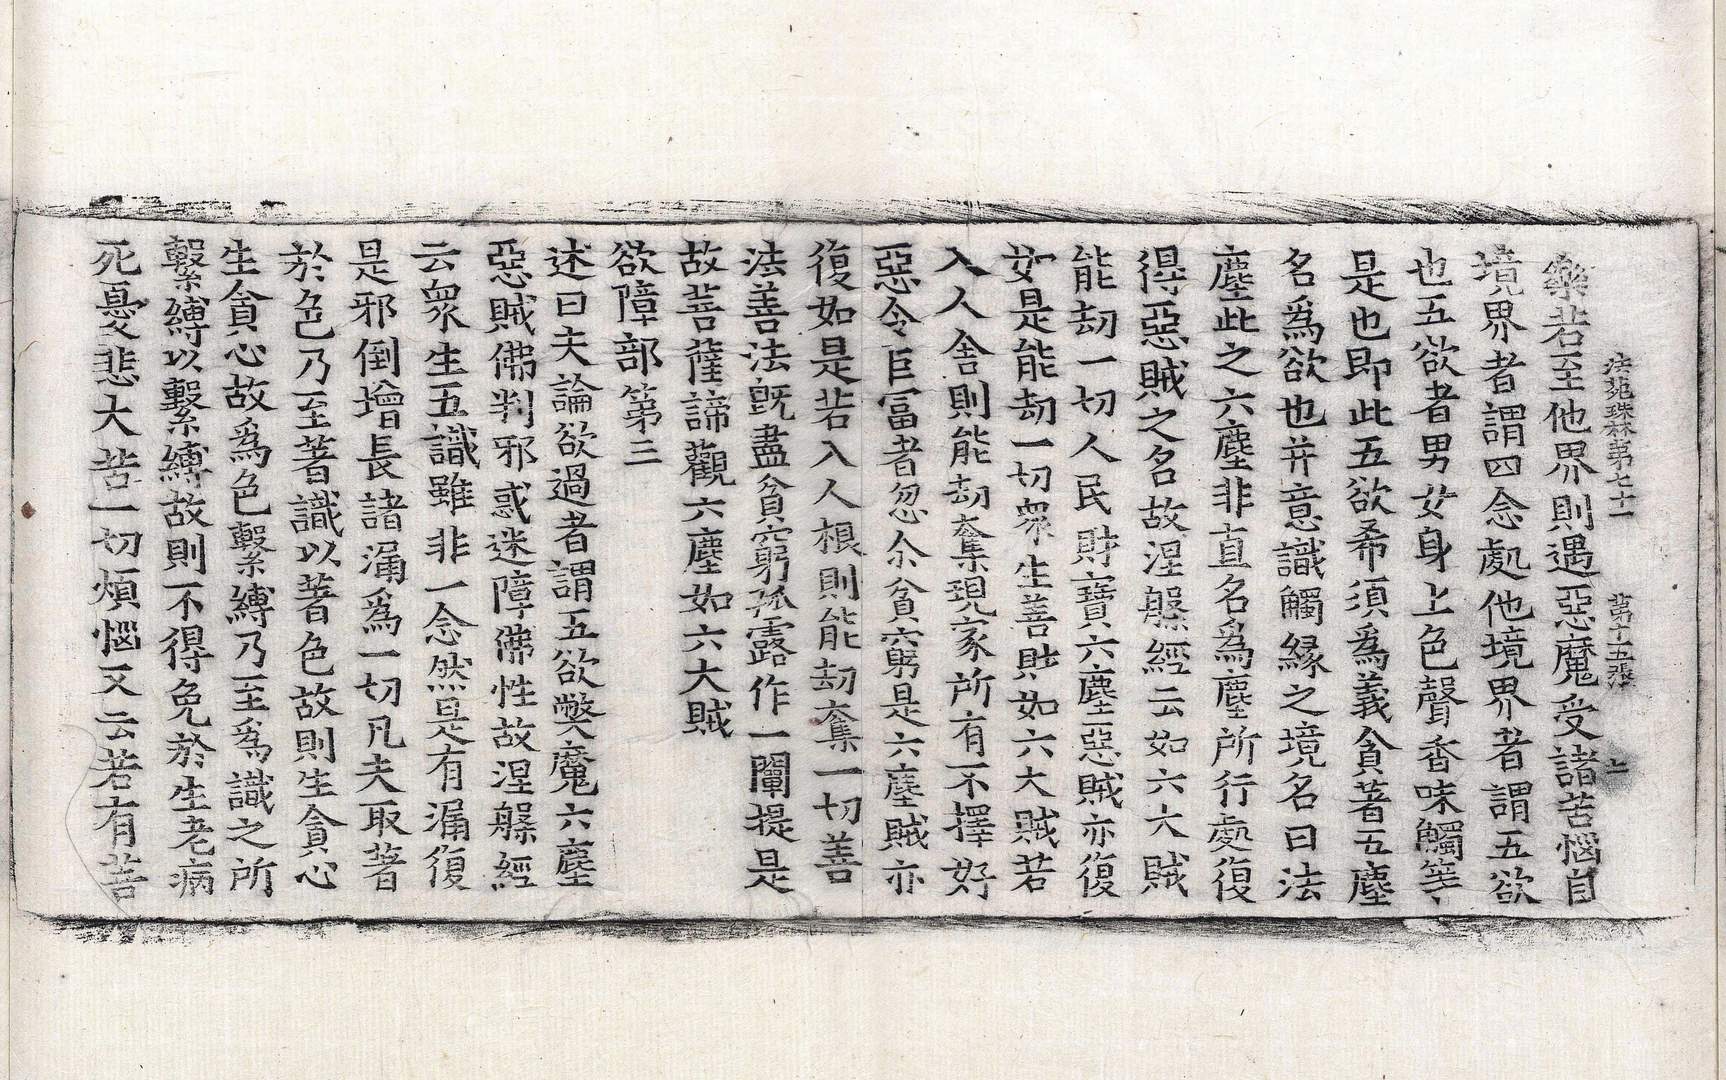 法苑珠林第七十一 第十五張 上
樂若至他界則遇惡魔受諸苦惱自
境界者謂四念處他境界者謂五欲
也五欲者男女身上色聲香味觸等
是也即此五欲希須爲義貪著五塵
名爲欲也并意識觸緣之境名曰法
塵此之六塵非直名爲塵所行處復
得惡賊之名故涅槃經云如六大賊
能劫一切人民財寶六塵惡賊亦復
如是能劫一切衆生善財如六大賊若
入人舍則能劫奪現家所有不擇好
惡令巨富者忽尒貧窮是六塵賊亦
復如是若入人根則能劫奪一切善
法善法旣盡貧窮孤露作一闡提是
故菩薩諦觀六塵如六大賊
欲障部第三
述曰夫論欲過者謂五欲弊魔六塵
惡賊佛判邪惑迷障佛性故涅槃經
云衆生五識雖非一念然是有漏復
是邪倒增長諸漏爲一切凡夫取著
於色乃至著識以著色故則生貪心
生貪心故爲色繫縛乃至爲識之所
繫縛以繫縛故則不得免於生老病
死憂悲大苦一切煩惱又云若有菩